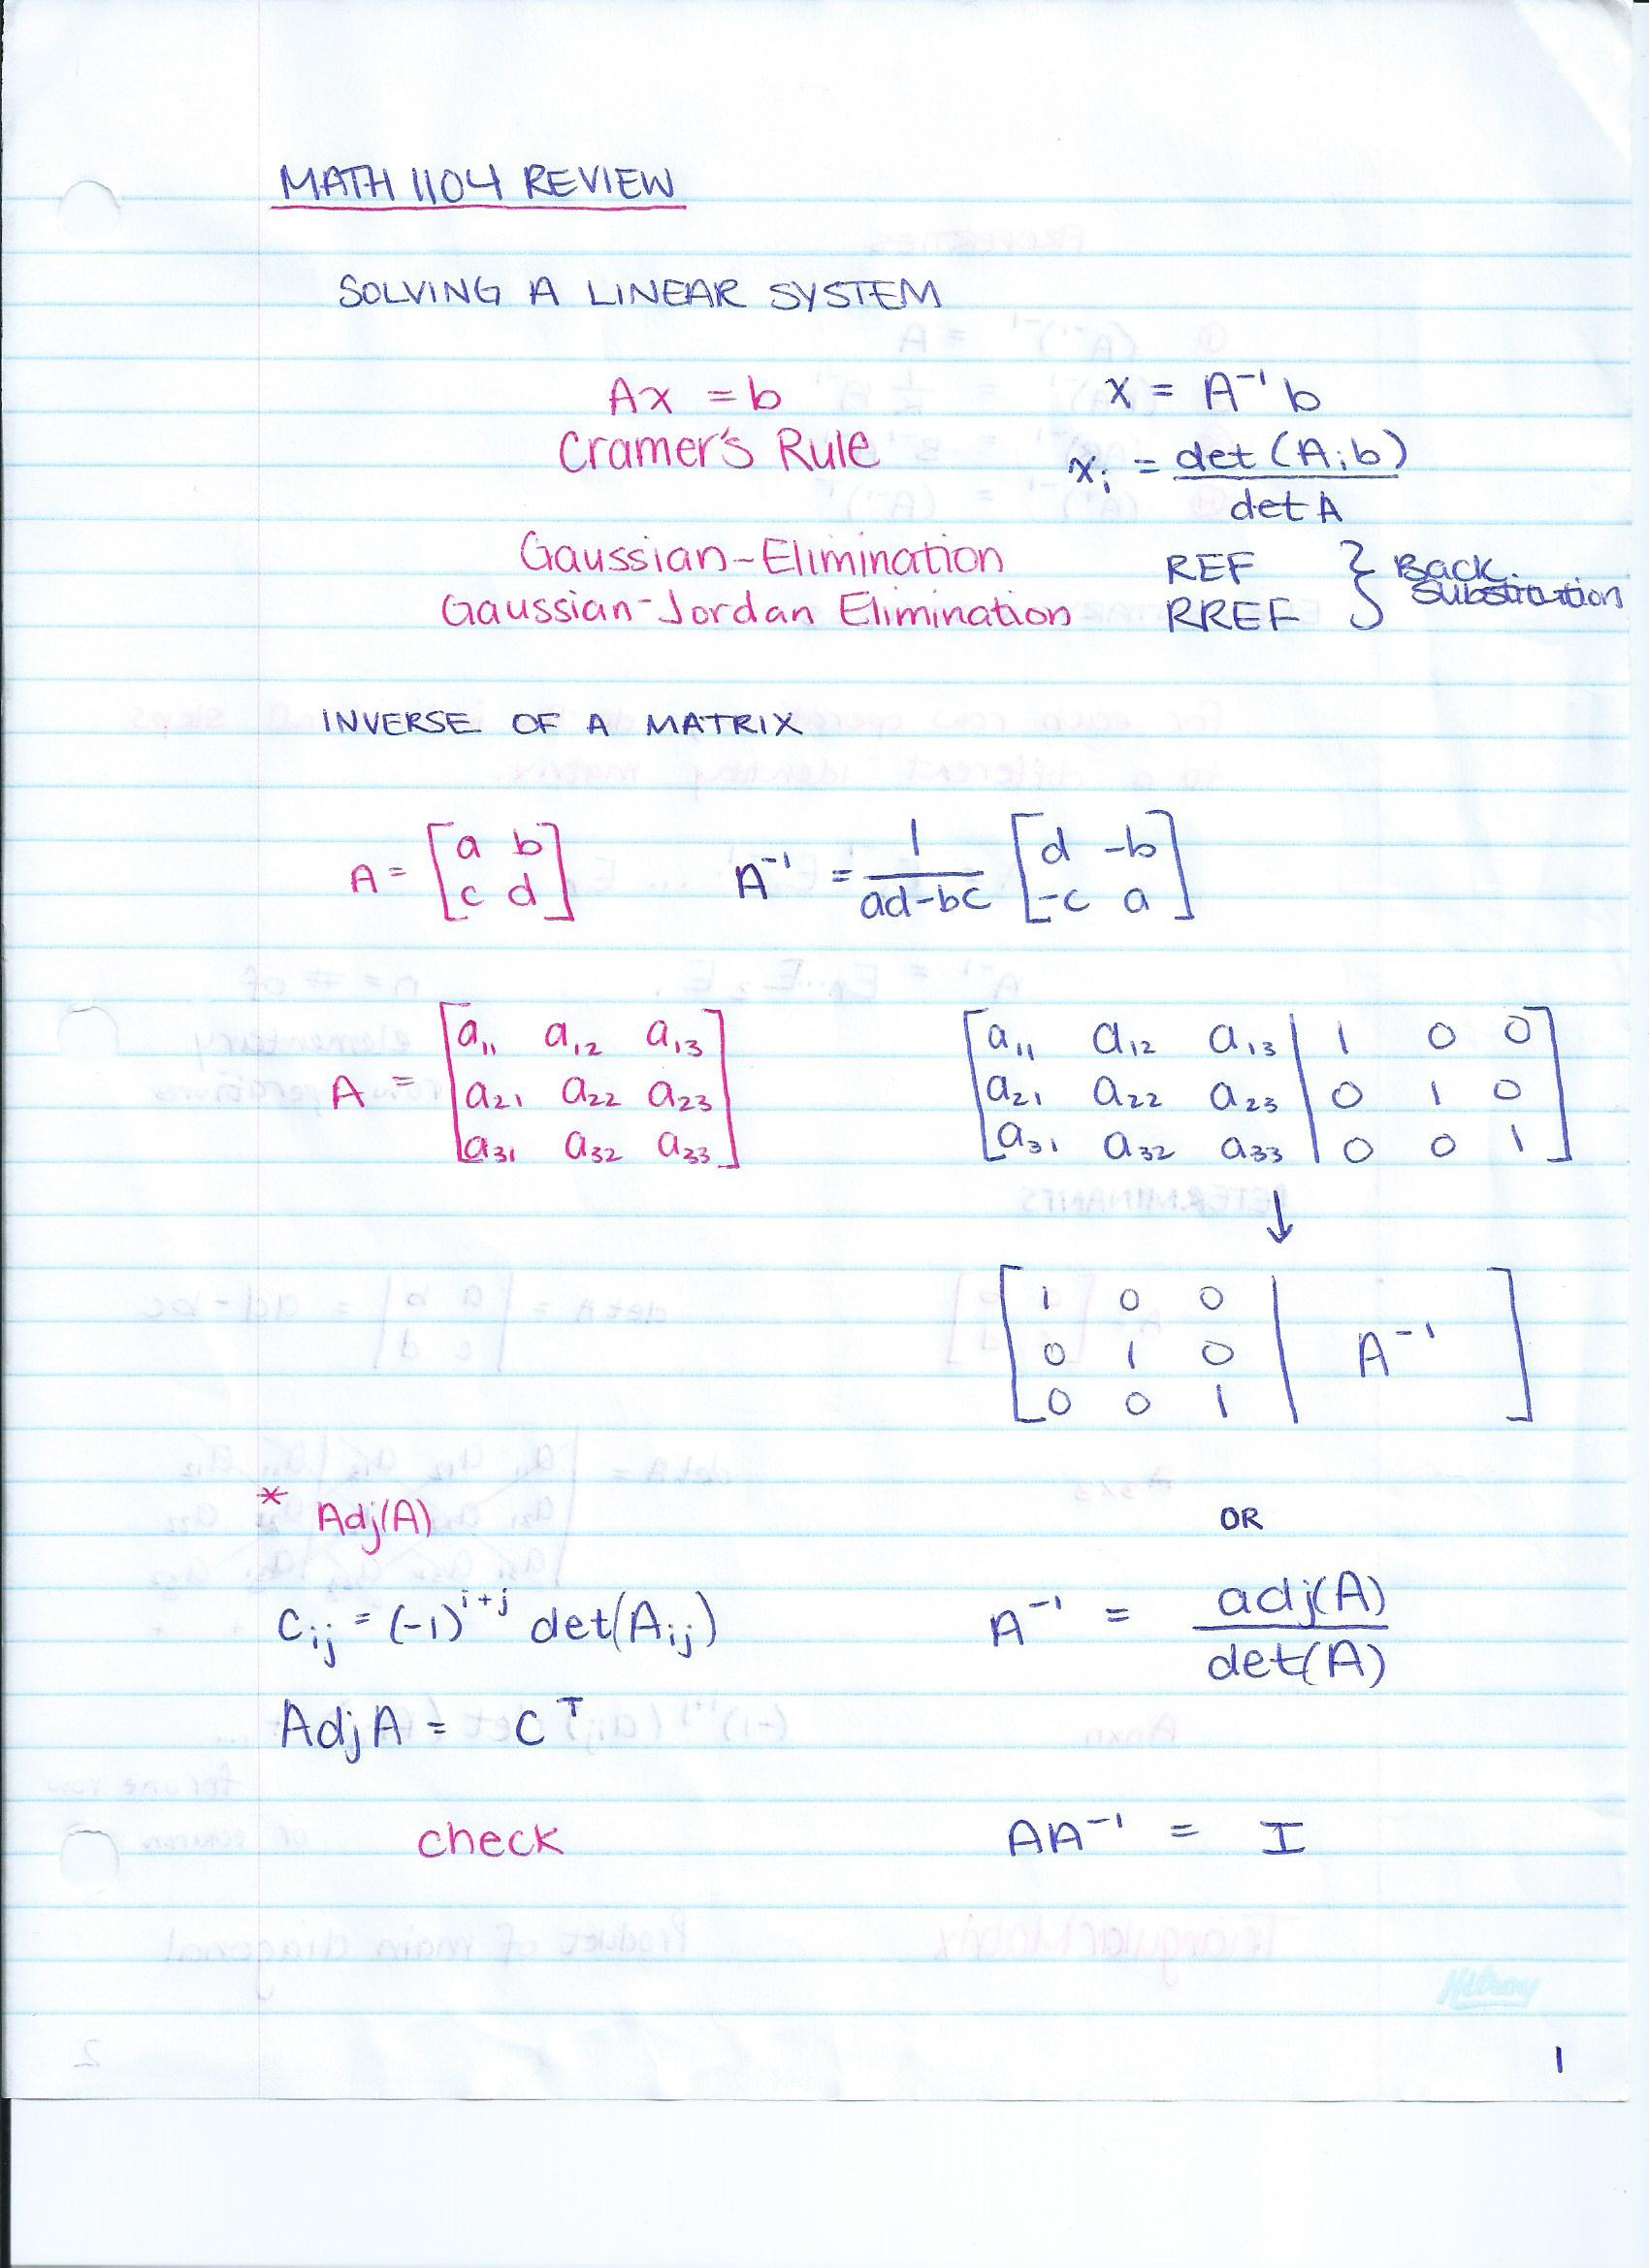 MATH 1104 REVIEW
SOLVING A LINEAR SYSTEM
Ax = b x = A⁻¹ b
Cramer's Rule xᵢ = det (Aᵢb) / det A
Gaussian-Elimination REF } Back
Gaussian-Jordan Elimination RREF } Substitution
INVERSE OF A MATRIX
A = [a b] A⁻¹ = 1 / (ad-bc) [d -b]
[c d] [-c a]
A = [a₁₁ a₁₂ a₁₃] [a₁₁ a₁₂ a₁₃ | 1 0 0]
[a₂₁ a₂₂ a₂₃] [a₂₁ a₂₂ a₂₃ | 0 1 0]
[a₃₁ a₃₂ a₃₃] [a₃₁ a₃₂ a₃₃ | 0 0 1]
↓
[1 0 0 | ]
[0 1 0 | A⁻¹]
[0 0 1 | ]
* Adj(A) OR
Cᵢⱼ = (-1)ⁱ⁺ʲ det(Aᵢⱼ) A⁻¹ = adj(A) / det(A)
Adj A = Cᵀ
check AA⁻¹ = I
Hilroy
1